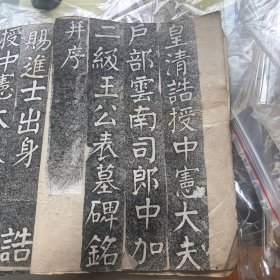 皇清誥授中憲大夫
戶部雲南司郎中加
二級王公表墓碑銘
并序
賜進士出身
誥
授中憲大